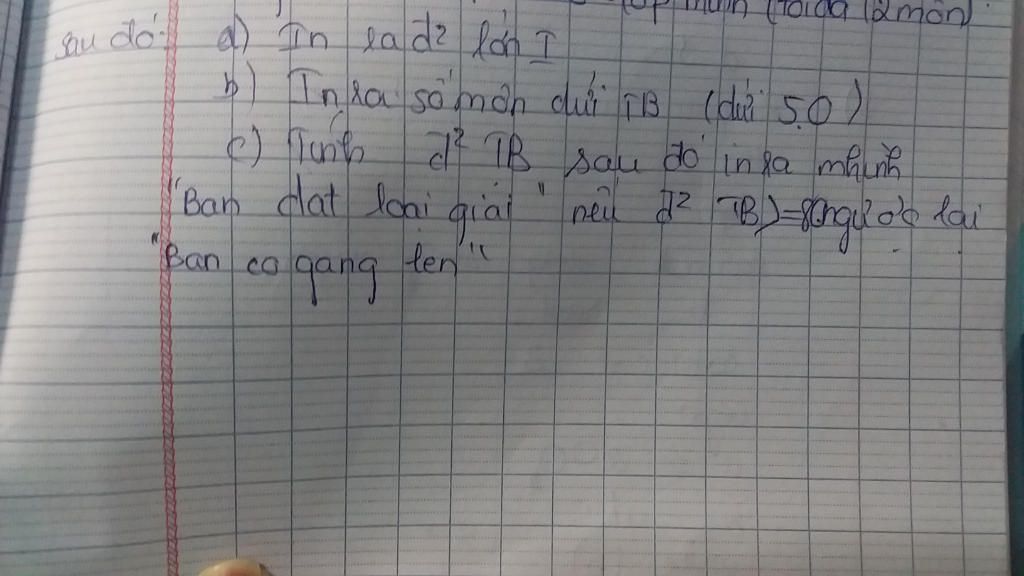 (tối đa 12 môn)
sau đó: a) In ra d² lớn I
b) In ra số môn dưới TB (dưới 5.0)
c) Tính d² TB sau đó in ra mhình
"Ban dat loai giai" nếu d² TB>=8 ngược lại
"Ban co gang len"